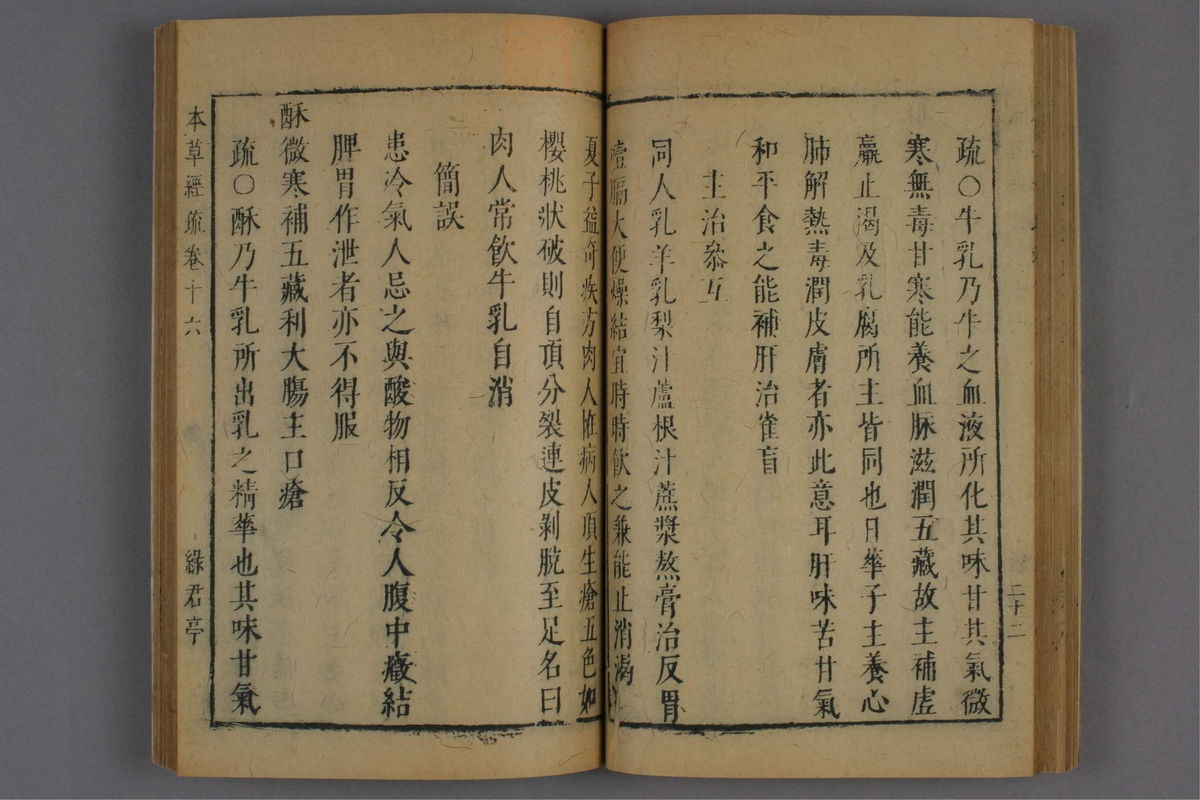 疏○牛乳乃牛之血液所化其味甘其氣微
寒無毒甘寒能養血脉滋潤五藏故主補虛
羸止渴及乳腐所主皆同也日華子主養心
肺解熱毒潤皮膚者亦此意耳肝味苦甘氣
和平食之能補肝治雀盲
主治叅互
同人乳羊乳梨汁蘆根汁蔗漿熬膏治反胃
噎膈大便燥結宜時時飲之兼能止消渴
夏子益竒疾方肉人怪病人頂生瘡五色如
櫻桃狀破則自頂分裂連皮剥脫至足名曰
肉人常飲牛乳自消
簡誤
患冷氣人忌之與酸物相反令人腹中癥結
脾胃作泄者亦不得服
酥微寒補五藏利大腸主口瘡
疏○酥乃牛乳所出乳之精華也其味甘氣
本草經疏卷十六
綠君亭
二十二